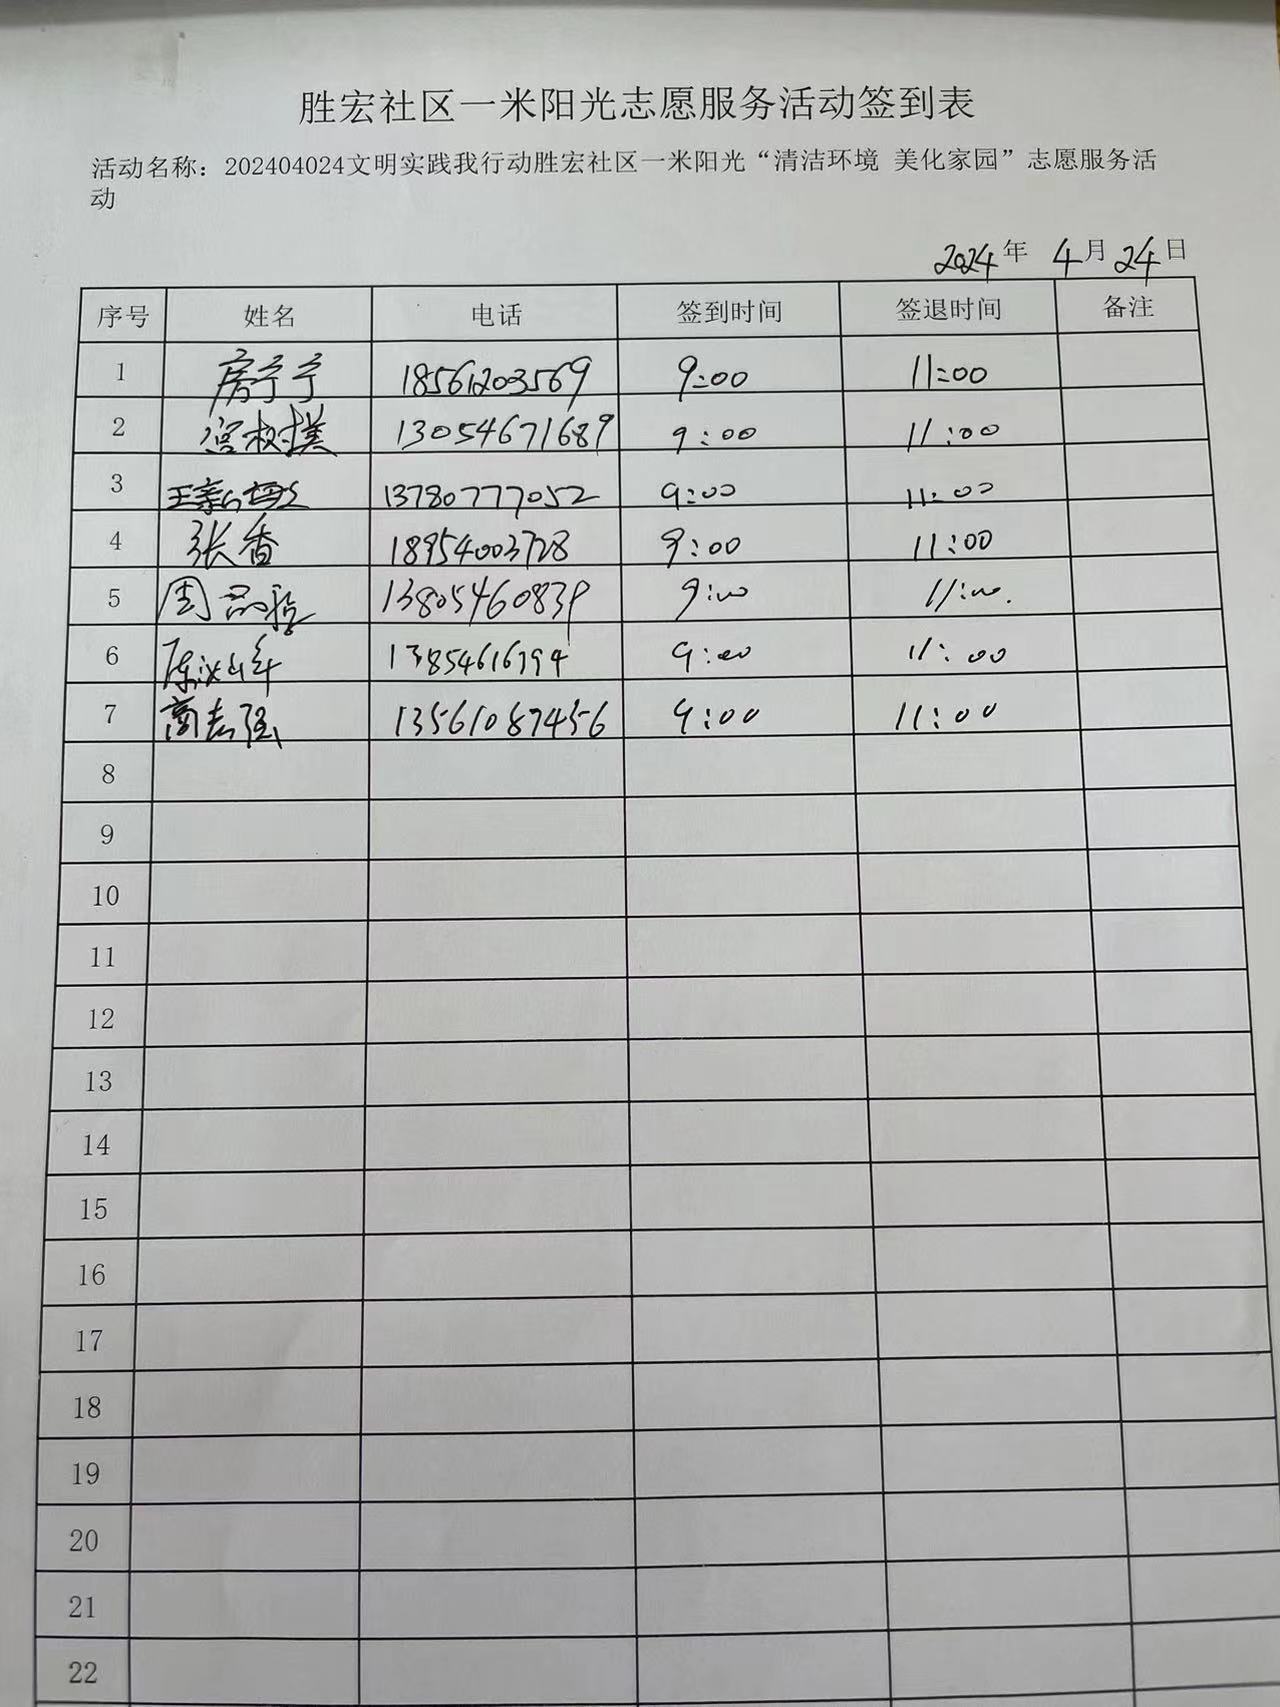 胜宏社区一米阳光志愿服务活动签到表
活动名称：202404024文明实践我行动胜宏社区一米阳光“清洁环境 美化家园”志愿服务活
动
2024年 4月24日
序号 姓名 电话 签到时间 签退时间 备注
1 房宁宁 18561203569 9:00 11:00
2 宫树模 13054671689 9:00 11:00
3 13780777052 9:00 11:00
4 张香 18954003728 9:00 11:00
5 周 13805460839 9:00 11:00.
6 陈 13854616794 9:00 11:00
7 商志强 13561087456 9:00 11:00
8
9
10
11
12
13
14
15
16
17
18
19
20
21
22